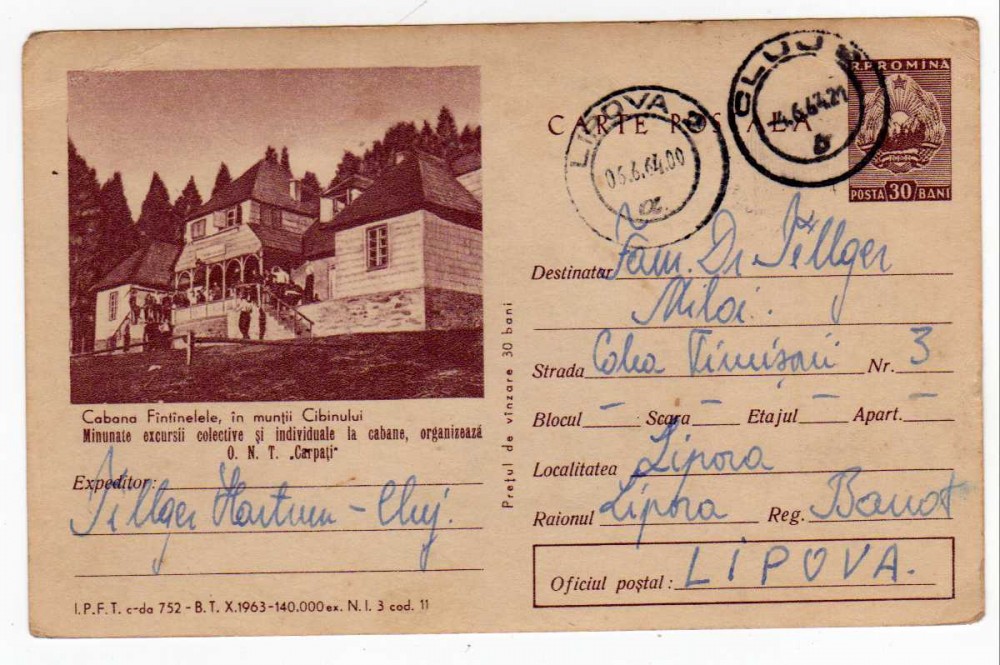 R.P.ROMINA
CARTE POSTALA
LIPOVA 2
05.6.64.00
a
CLUJ 5
-4.6.64.21
b
POSTA 30 BANI
Cabana Fîntînelele, în munții Cibinului
Minunate excursii colective și individuale la cabane, organizează
O. N. T. „Carpați"
Expeditor:
Tellger Hartum - Cluj.
I.P.F.T. c-da 752 - B.T. X.1963-140.000 ex. N.I. 3 cod. 11
Prețul de vînzare 30 bani
Destinatar Fam. Dr Tellger
Miloi.
Strada Calea Timișorii Nr. 3
Blocul - Scara - Etajul - Apart. -
Localitatea Lipova
Raionul Lipova Reg. Banat
Oficiul poștal: LIPOVA.